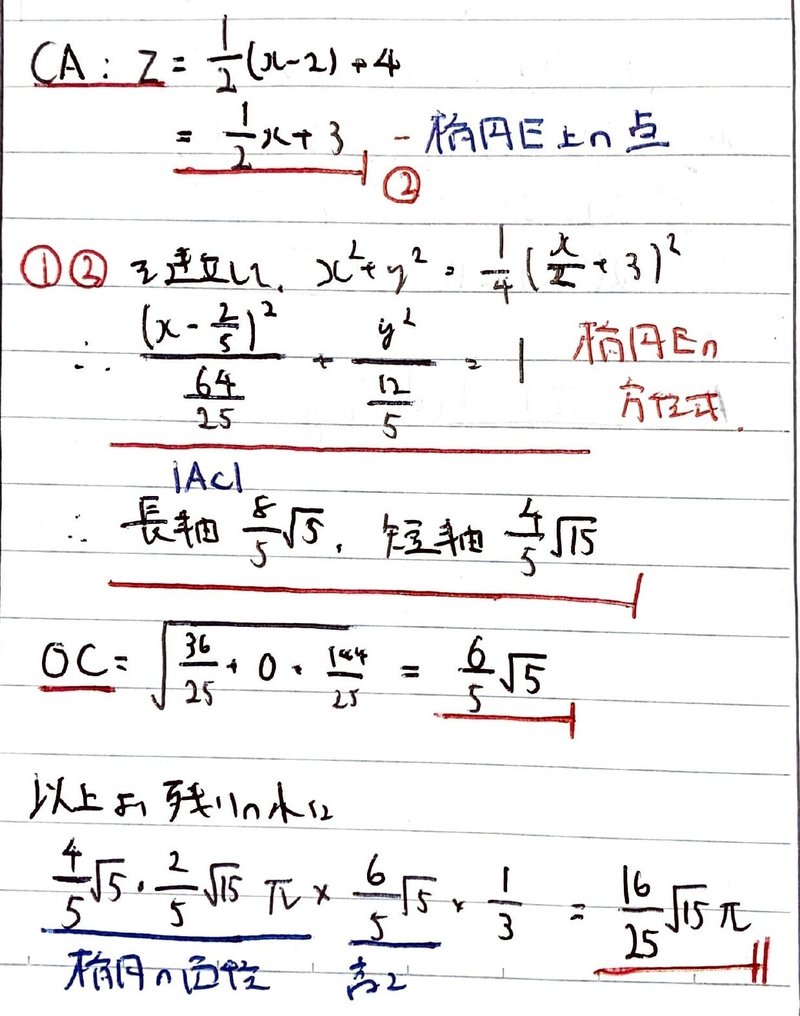 CA : Z = 1/2(x-2)+4
= 1/2x+3 - 楕円E上の点
②
①②を連立して、x²+y² = 1/4(x/2+3)²
∴ (x-2/5)²/(64/25) + y²/(12/5) = 1 楕円Eの
方程式.
|AC|
∴ 長軸 8/5√5, 短軸 4/5√15
OC = √(36/25+0+144/25) = 6/5√5
以上より残りの水は
4/5√5・2/5√15 π × 6/5√5 × 1/3 = 16/25√15π
楕円の面積 高さ